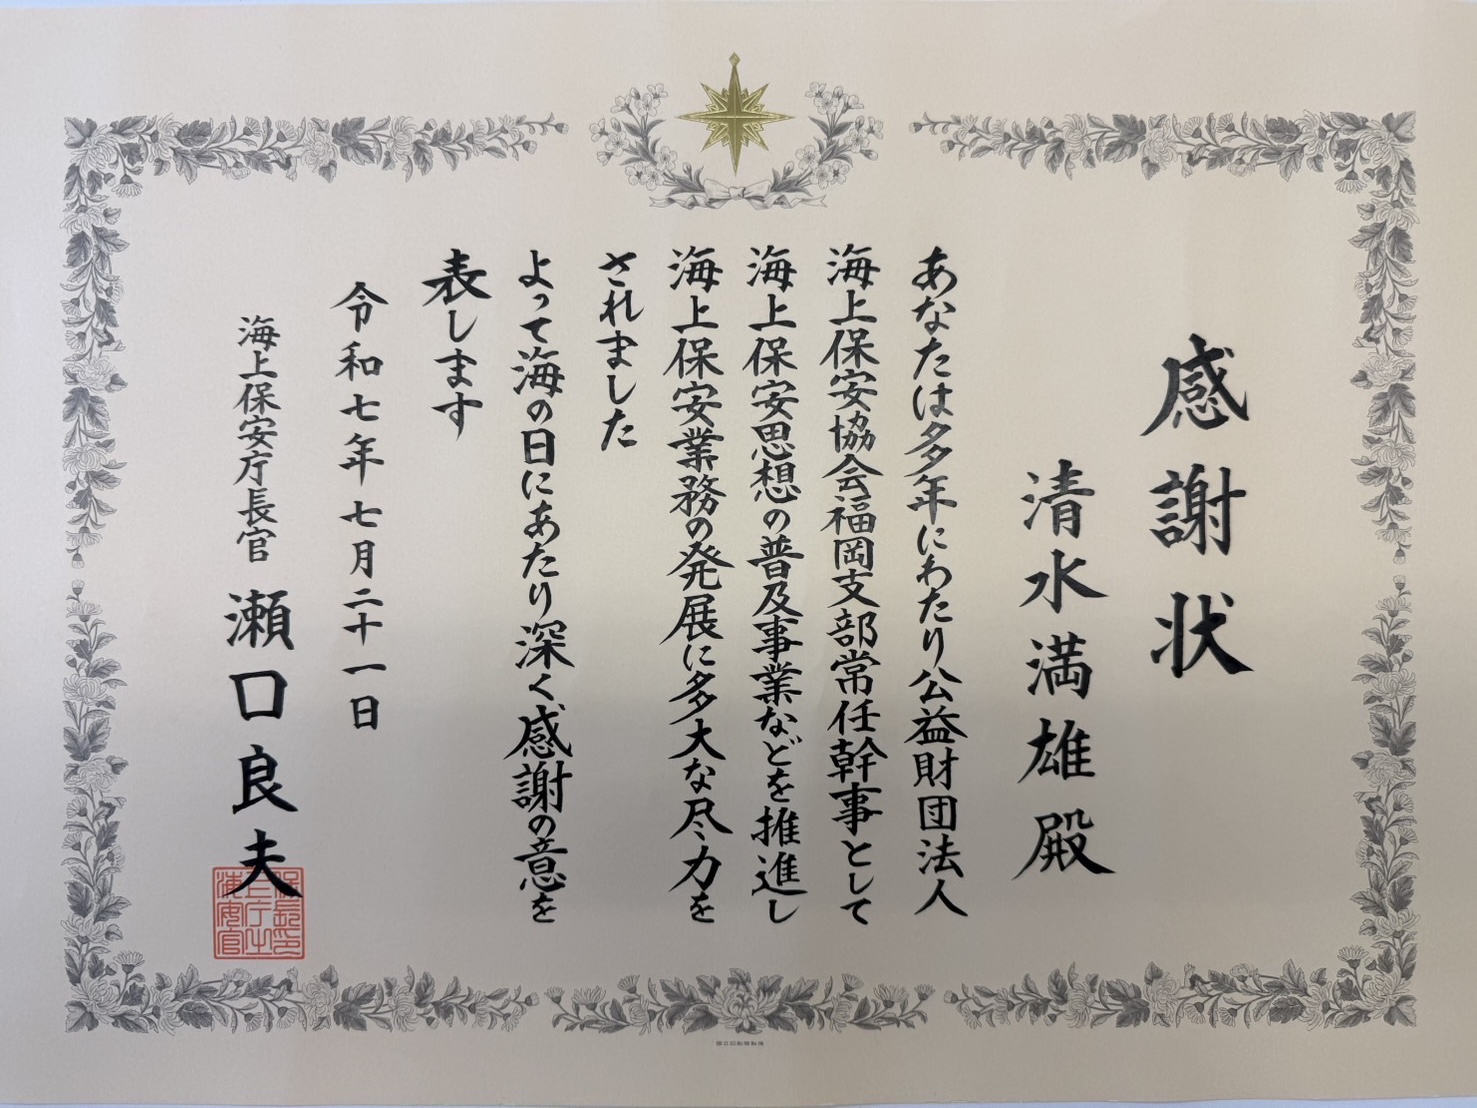 感謝状
清水満雄殿
あなたは多年にわたり公益財団法人
海上保安協会福岡支部常任幹事として
海上保安思想の普及事業などを推進し
海上保安業務の発展に多大な尽力を
されました
よって海の日にあたり深く感謝の意を
表します
令和七年七月二十一日
海上保安庁長官 瀬口良夫